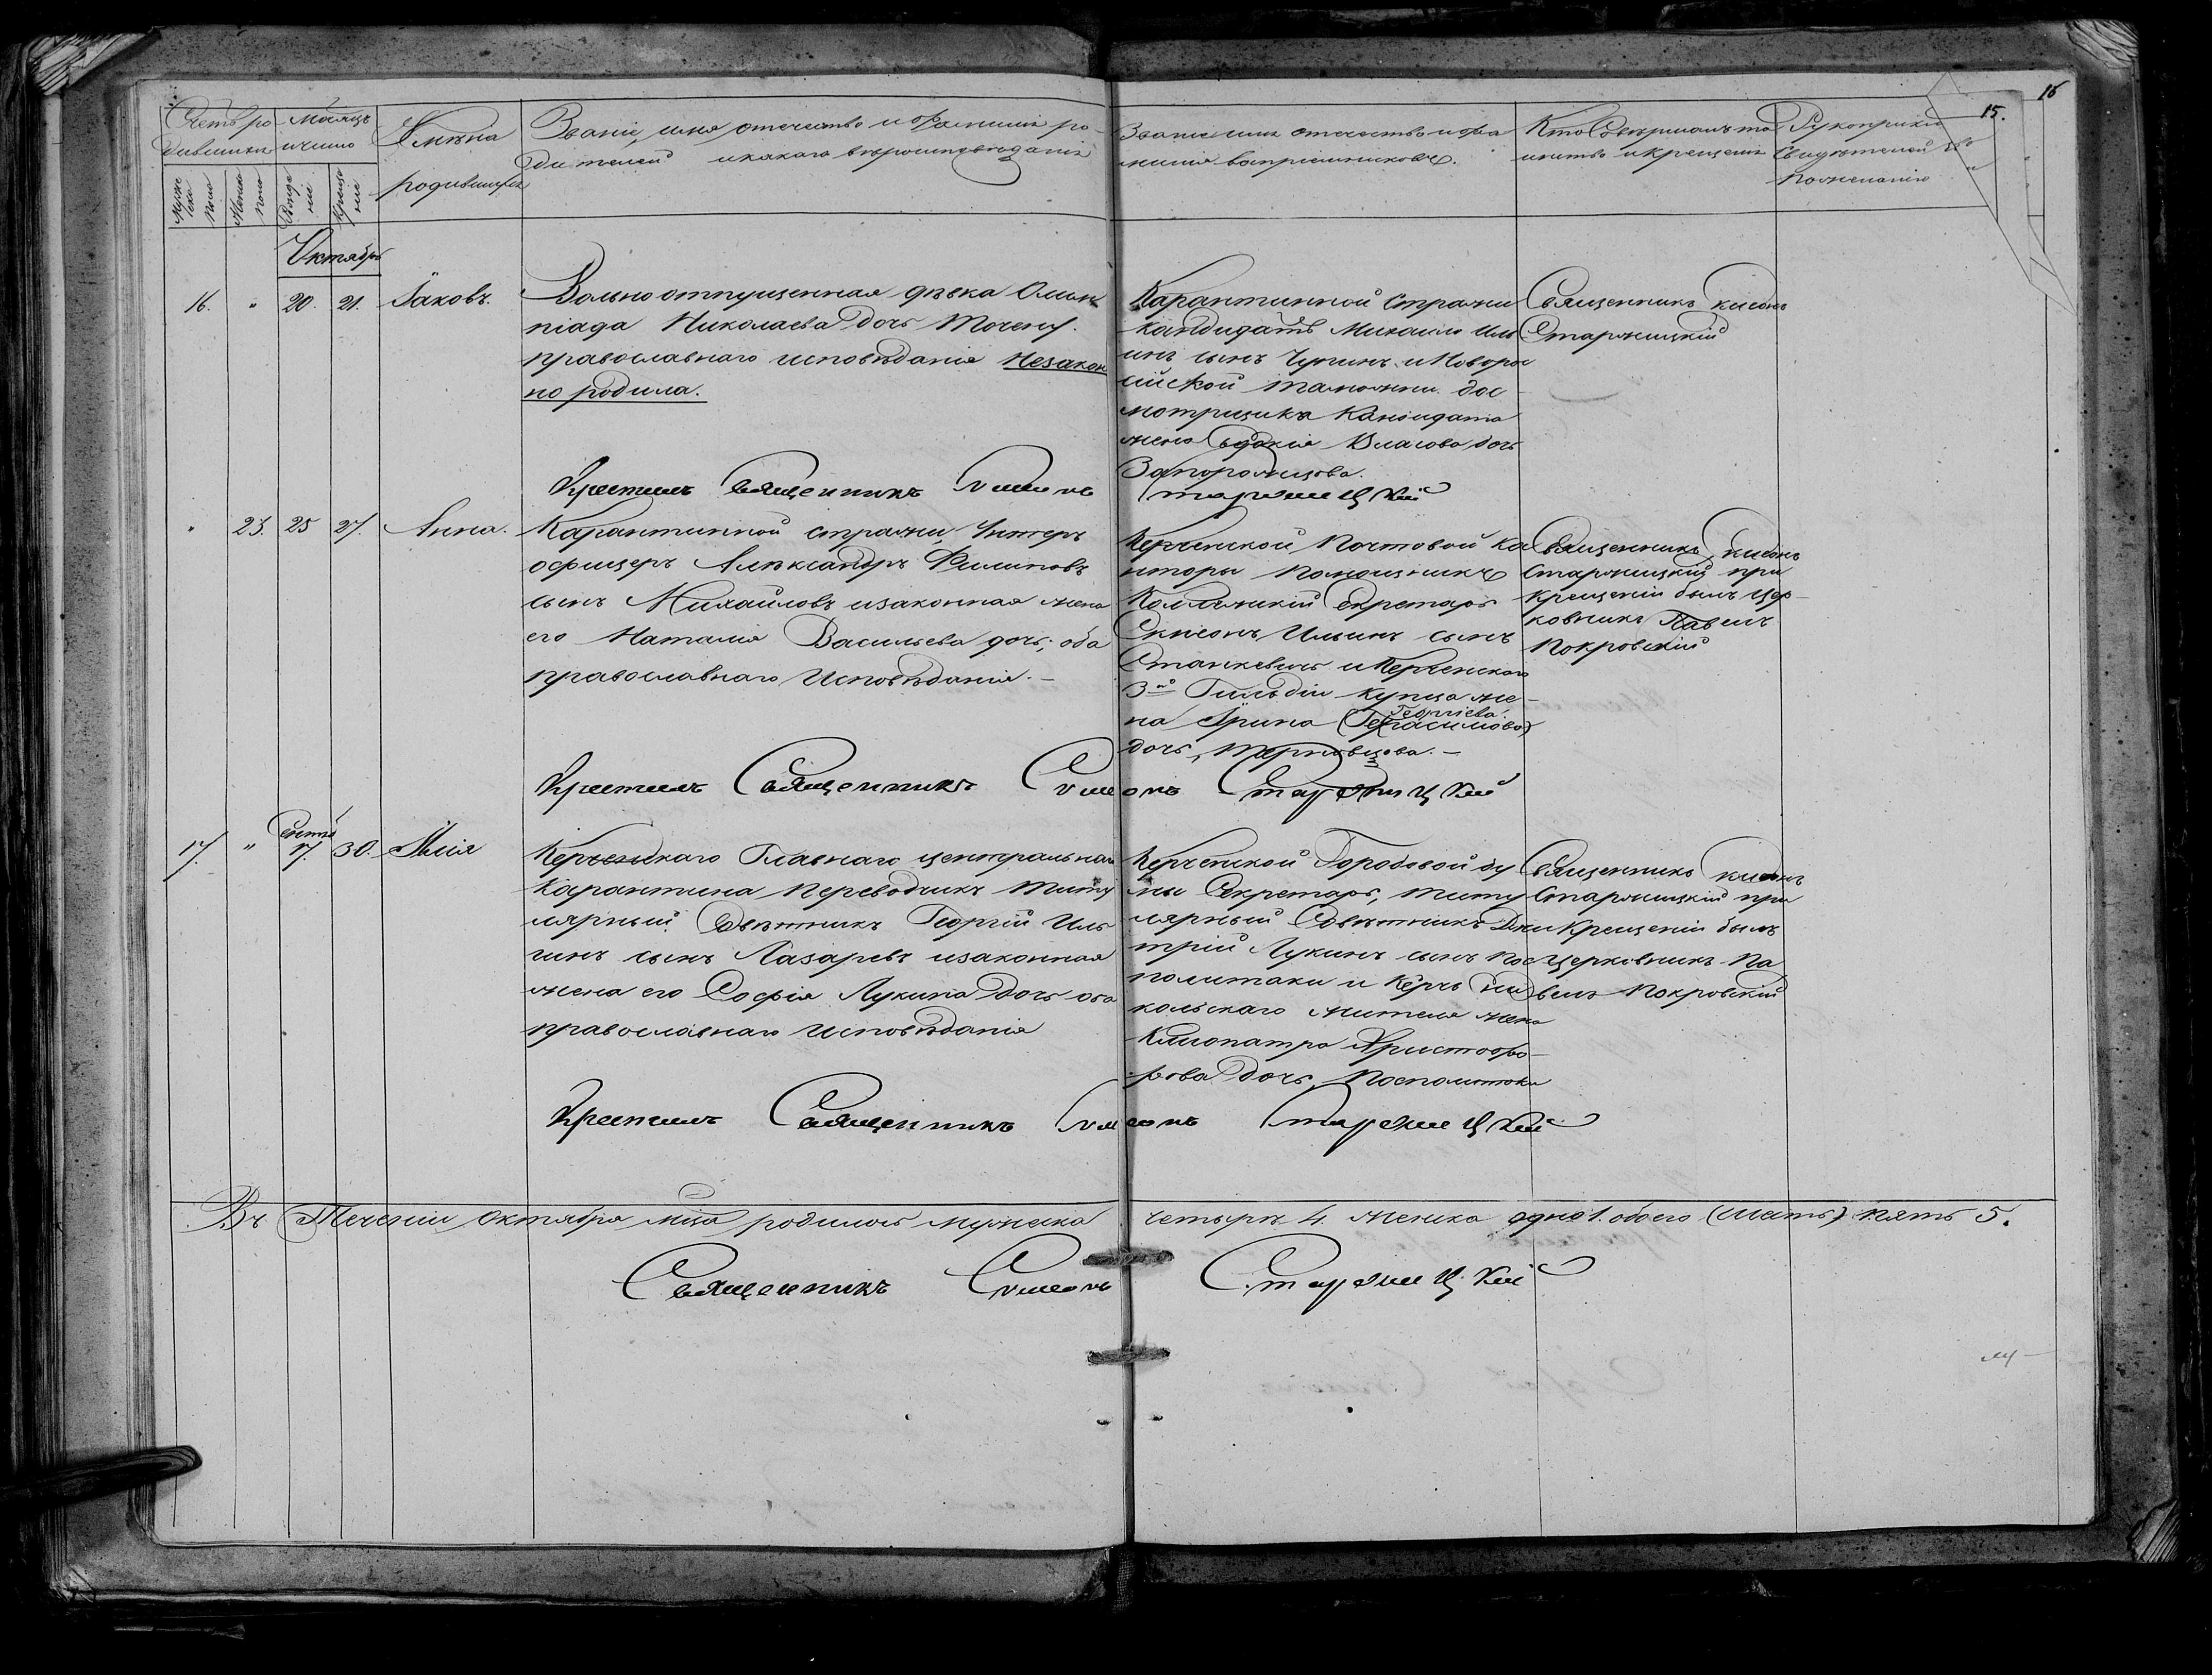 16
15.
Счетъ ро-
дившихся
Мѣсяцъ
и число
Имѣна
родившихся
Званіе, имя отечество и фамиліи ро-
дителей и какаго вѣроисповѣданія
Званіе имя отечество и фа
милія воспріемниковъ.
Кто совѣршалъ та
инство крещенія
Рукоприкла
свидѣтелей
по желанію
Муже
ска
пола
Женск
пола
Рожде
ніе
Креще
ніе
Октябрь
16. " 20. 21. Іаковъ.
Вольно отпущенная дѣвка Олим
піада Николаева дочь
православнаго исповѣданія Незакон
но родила.
Карантинной стражи
кандидатъ Михаилъ Иль
инъ сынъ Чупинъ и Новорос
сійской таможни дос
мотрщика Кандидата
жена Евдокія Власова дочь
Запорожцова.
Священникъ Симеонъ
Старжицкій
Крестилъ Священникъ Симеонъ Старжицкій
" 23. 25 27. Анна.
Карантинной стражи, Унтеръ
офицеръ Александръ Филиповъ
сынъ Михайловъ и законная жена
его Наталія Васильева дочь; оба
православнаго Исповѣданія. –
Керченской Почтовой Ка
нторы Помощникъ
Коллежскій Секретарь
Симеонъ Ильинъ сынъ
Станкевичъ и Керченскаго
3й Гильдіи купца же-
Георгіева
на Ирина (Герасимова)
дочь,
Священникъ Симеонъ
Старжицкій при
крещеніи былъ цер-
ковникъ Павелъ
Покровскій
Крестилъ Священникъ Симеонъ Старжицкій
Сентяб
17. " 17. 30. Илія
Керченскаго Главнаго центральнаго
Карантина Переводчикъ Титу
лярный Совѣтникъ Георгій Иль
инъ сынъ Лазаревъ и законная
жена его Софія Лукина дочь оба
православнаго Исповѣданія
Керченской Городовой ду
мы Секретарь, титу
лярный Совѣтникъ Дми
трій Лукинъ сынъ Пос
политаки и Керчь Ени
кольскаго жителя жена
Клиопатра Христофо-
рова дочь, Посполитаки
Священникъ Симеонъ
Старжицкій при
Крещеніи былъ
церковникъ Па
велъ Покровскій
Крестилъ Священникъ Симеонъ Старжицкій
Въ Теченіи Октября мѣца родилось мужеска четырѣ 4. женска одна 1. обоего (шесть) пять 5.
Священникъ Симеонъ Старжицкій